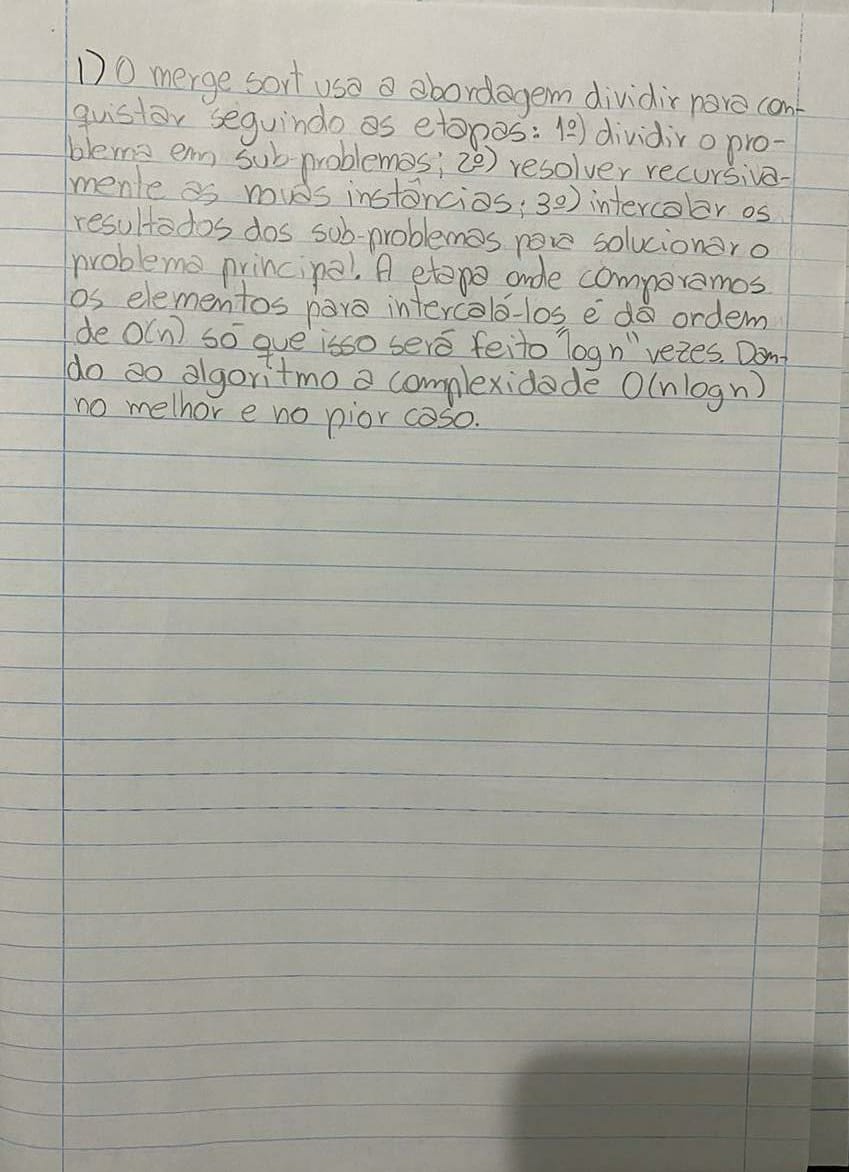 1) O merge sort usa a abordagem dividir para con-
quistar seguindo as etapas: 1º) dividir o pro-
blema em sub-problemas; 2º) resolver recursiva-
mente as novas instâncias; 3º) intercalar os
resultados dos sub-problemas para solucionar o
problema principal. A etapa onde comparamos
os elementos para intercalá-los é da ordem
de O(n) só que isso será feito "log n" vezes. Dan-
do ao algoritmo a complexidade O(n log n)
no melhor e no pior caso.